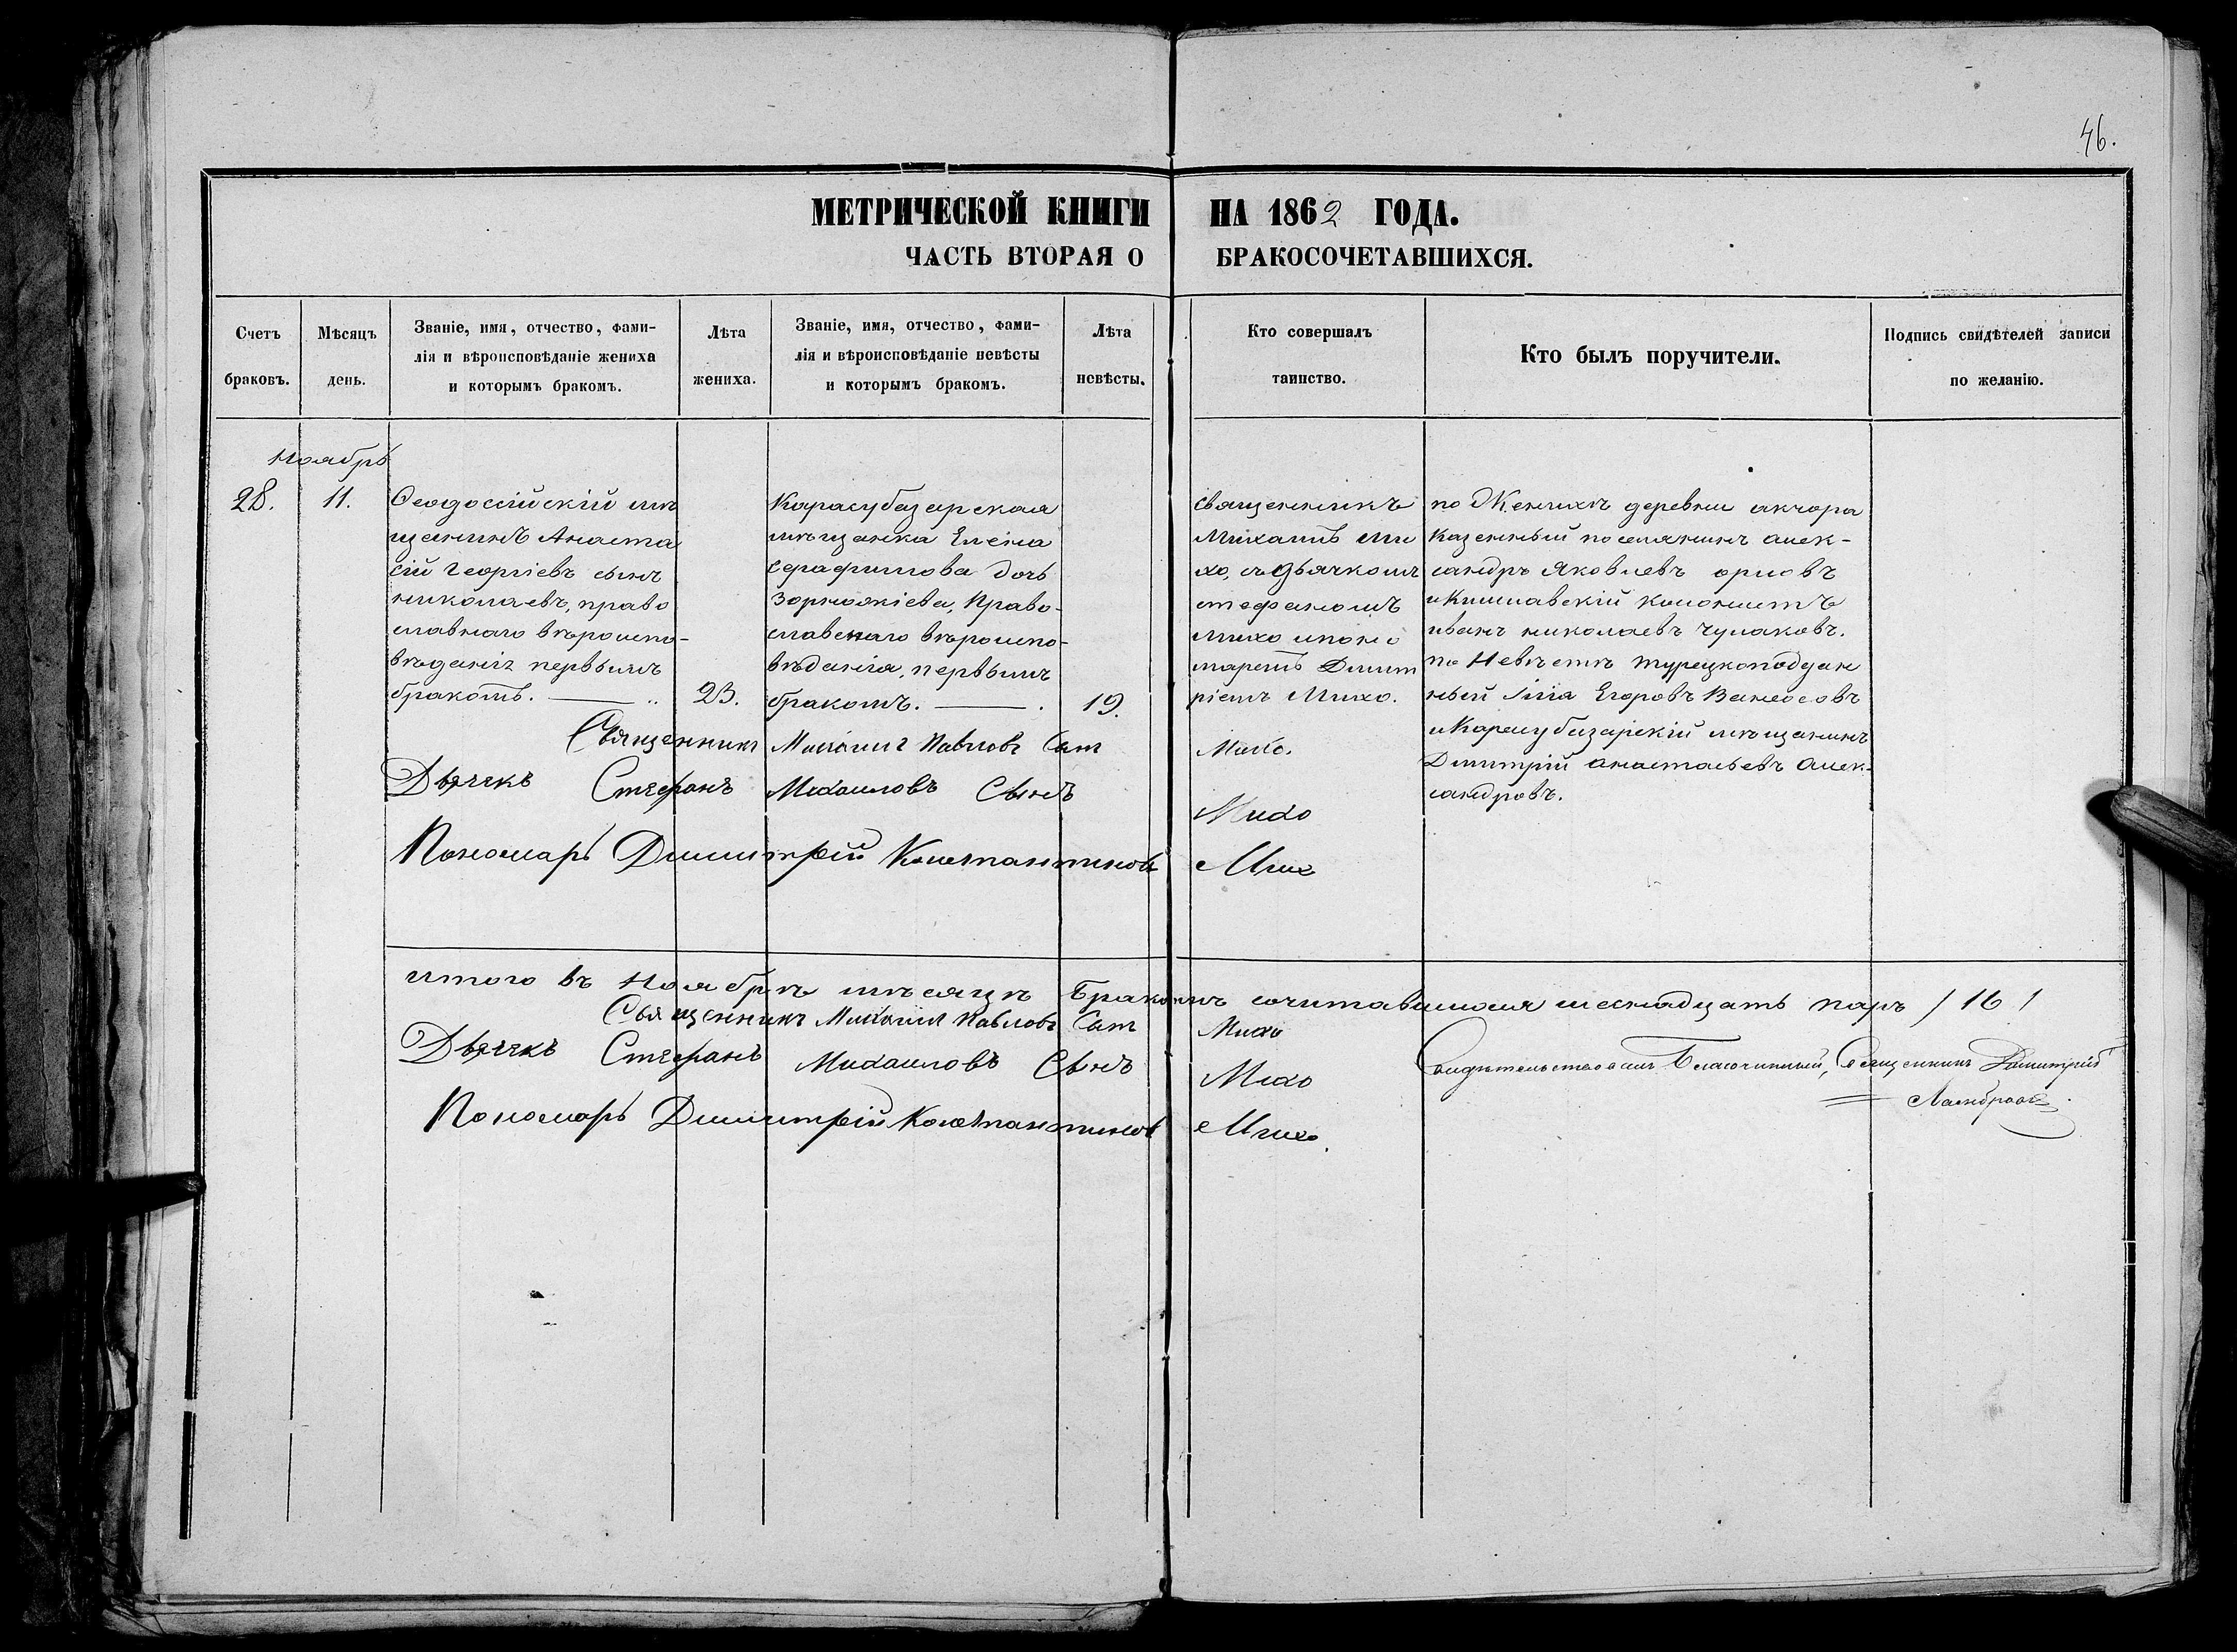 46.
МЕТРИЧЕСКОЙ КНИГИ НА 1862 ГОДА.
ЧАСТЬ ВТОРАЯ О БРАКОСОЧЕТАВШИХСЯ.
Счетъ
браковъ.
Мѣсяцъ
день.
Званіе, имя, отчество, фами-
лія и вѣроисповѣданіе жениха
и которымъ бракомъ.
Лѣта
жениха.
Званіе, имя, отчество, фами-
лія и вѣроисповѣданіе невѣсты
и которымъ бракомъ.
Лѣта
невѣсты.
Кто совершалъ
таинство.
Кто былъ поручители.
Подпись свидѣтелей записи
по желанію.
Ноябрь
28.
11.
Ѳеодосійскій мѣ
щанинъ Анаста
сій Георгіевъ сынъ
николаевъ, право
славнаго вѣроиспо-
вѣданія первымъ
бракомъ.
23.
Карасубазарская
мѣщанка Елена
Серафимова дочь
Право-
славнаго вѣроиспо-
вѣданія, первымъ
бракомъ.
19.
священникъ
Михаилъ Ми
хо, съ дьячкомъ
стефаномъ
Михо и поно
маремъ Димит
ріемъ Михо.
по Женихѣ деревни акчора
Казенный поселянинъ алек-
сандръ Яковлевъ орловъ
и Кишлавскій колонистъ
иванъ николаевъ чулаковъ.
по Невѣстѣ турецкоподдан
ный Илія Егоровъ
и Карасубазарскій мѣщанинъ
Димитрій анастасьевъ алек-
сандровъ.
Священникъ Михаилъ Павловъ Сынъ Михо.
Дьячекъ Стефанъ Михаиловъ Сынъ Михо
Пономарь Димитрій Константиновъ Михо
итого въ Ноябрѣ мѣсяцѣ Бракомъ сочитавшихся шеснадцать паръ / 16 /
Священникъ Михаилъ Павловъ Сынъ Михо
Дьячекъ Стефанъ Михаиловъ Сынъ Михо
Пономарь Димитрій Константиновъ Михо.
Свидѣтельствовалъ Благочинный, Священникъ Димитрій